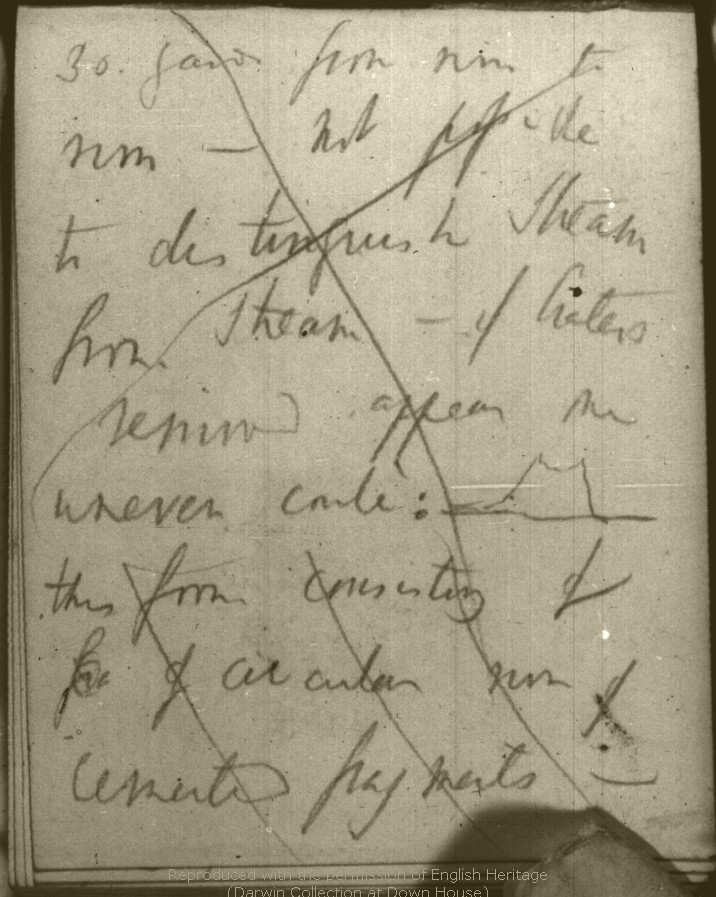 30. yards from rim to
rim — not possible
to distinguish Stream
from Stream — if Craters
removed appear one
uneven cone:
this form consisting of
of circular rim of
cemented fragments —
Reproduced with the permission of English Heritage
(Darwin Collection at Down House)